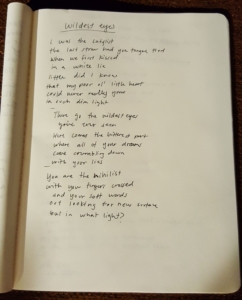 Wildest eyes
I was the
the last straw had you tongue tied
when we first kissed
in a white lie
little did I know
that my poor ol' little heart
could never
in such dim light
There go the wildest eyes
you've ever seen
Here comes the bitterest part
where all of your dreams
come crumbling down
with your lies
You are the nihilist
with your fingers crossed
and your soft words
out looking for new
but in what light?